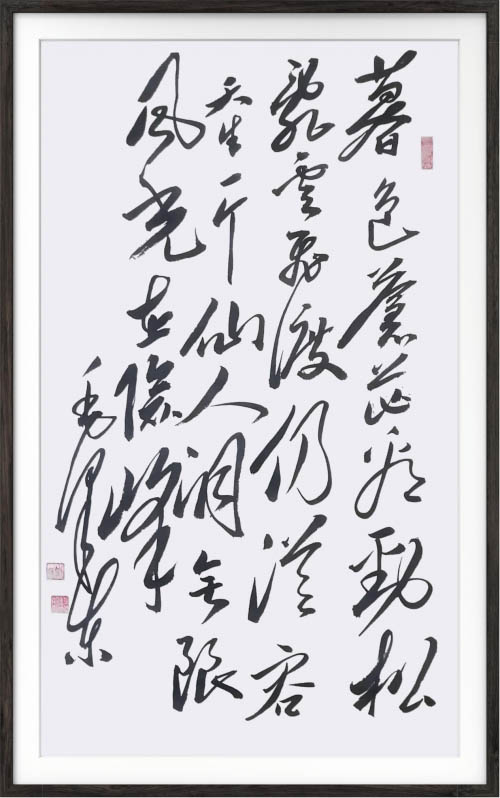 暮色蒼茫看勁松
亂雲飛渡仍從容
天生一个仙人洞無限
風光在險峰
毛澤東